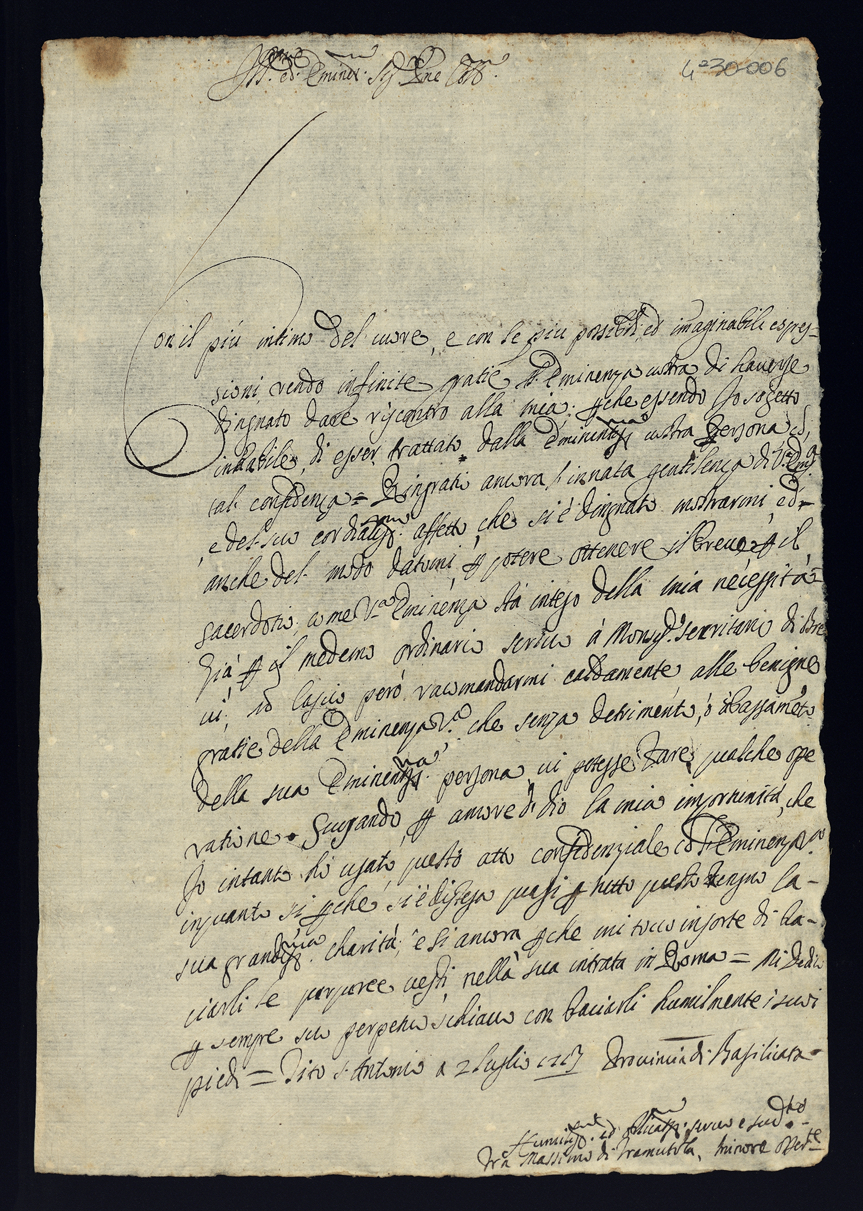 Ill.mo ed Emin.mo Sig.re P.ne Col.mo
4a 30-006
Con il più intimo del cuore, e con le più possibili, ed imaginabili espres-
sioni, rendo infinite gratie all' Eminenza vostra di havesse
dingnato dare riscontro alla mia: perche essendo Jo sogetto
inhabile, di esser trattato dalla Eminentiss.ma vostra Persona ed,
tal confidenza = Ringratio ancora l'innata gentilenza di V.ra Em.za
e del suo cordialiss.mo affetto, che si è dingnato mostrarmi, ed-
anche del modo datomi per potere ottenere il Breve per il
sacerdotio come V.ra Eminenza sta inteso della mia necessità =
Già per il medemo ordinario scrivo à Monsig.r Secritario di Bre
vi; no lascio però racomandarmi caldamente alle benigne
gratie della Eminenza V.ra che senza detrimento, ò abassamento
della sua Eminentiss.ma persona vi potesse fare qualche ope
ratione. Scusando per amore di dio la mia importunità, che
Jo intanto hò usato questo atto confidenziale con l'Eminenza V.ra
inquanto si perche si è distesa quasi per tutto questo Rengno la-
sua grandiss.ma charità; e si ancora perche mi toccò in sorte di ba-
ciarli le purporee vesti nella sua intrata in Roma = Mi dedico
per sempre suo perpetuo schiavo con baciarli humilmente i suoi
piedi = Tito S. Antonio a 2 luglio Provincia di Basilicata
Humiliss.mo ed Obligatiss.mo servo e sud.to
Fra Massimo di Tramutola, Minore Osser.te